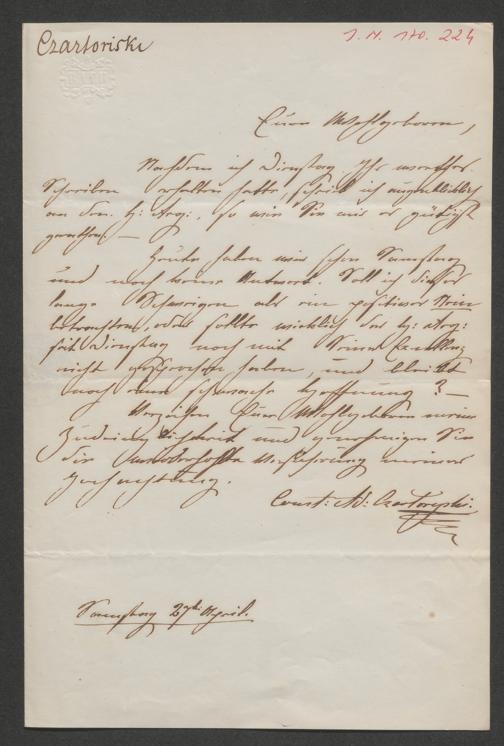 Czartoriski
J. N. 170. 224
Euer Wohlgeboren,
Nachdem ich Dienstag Ihr werthes
Schreiben erhalten hatte, schrieb ich augenblicklich
an den H: Arg:, so wie Sie mir es gütigst
gerathen. —
Heute haben wir schon Samstag
und noch keine Antwort. Soll ich dieses
lange Schweigen als ein positives Nein
betrachten, oder sollte wirklich der H: Arg:
seit Dienstag noch mit Seiner Excellenz
nicht gesprochen haben, und bleibt
noch eine schwache Hoffnung? —
Verzeihen Euer Wohlgeboren meine
Zudringlichkeit und genehmigen Sie
die Versicherung meiner
Hochachtung.
Const: Ad: Czartoryski.
Samstag 27ten April.